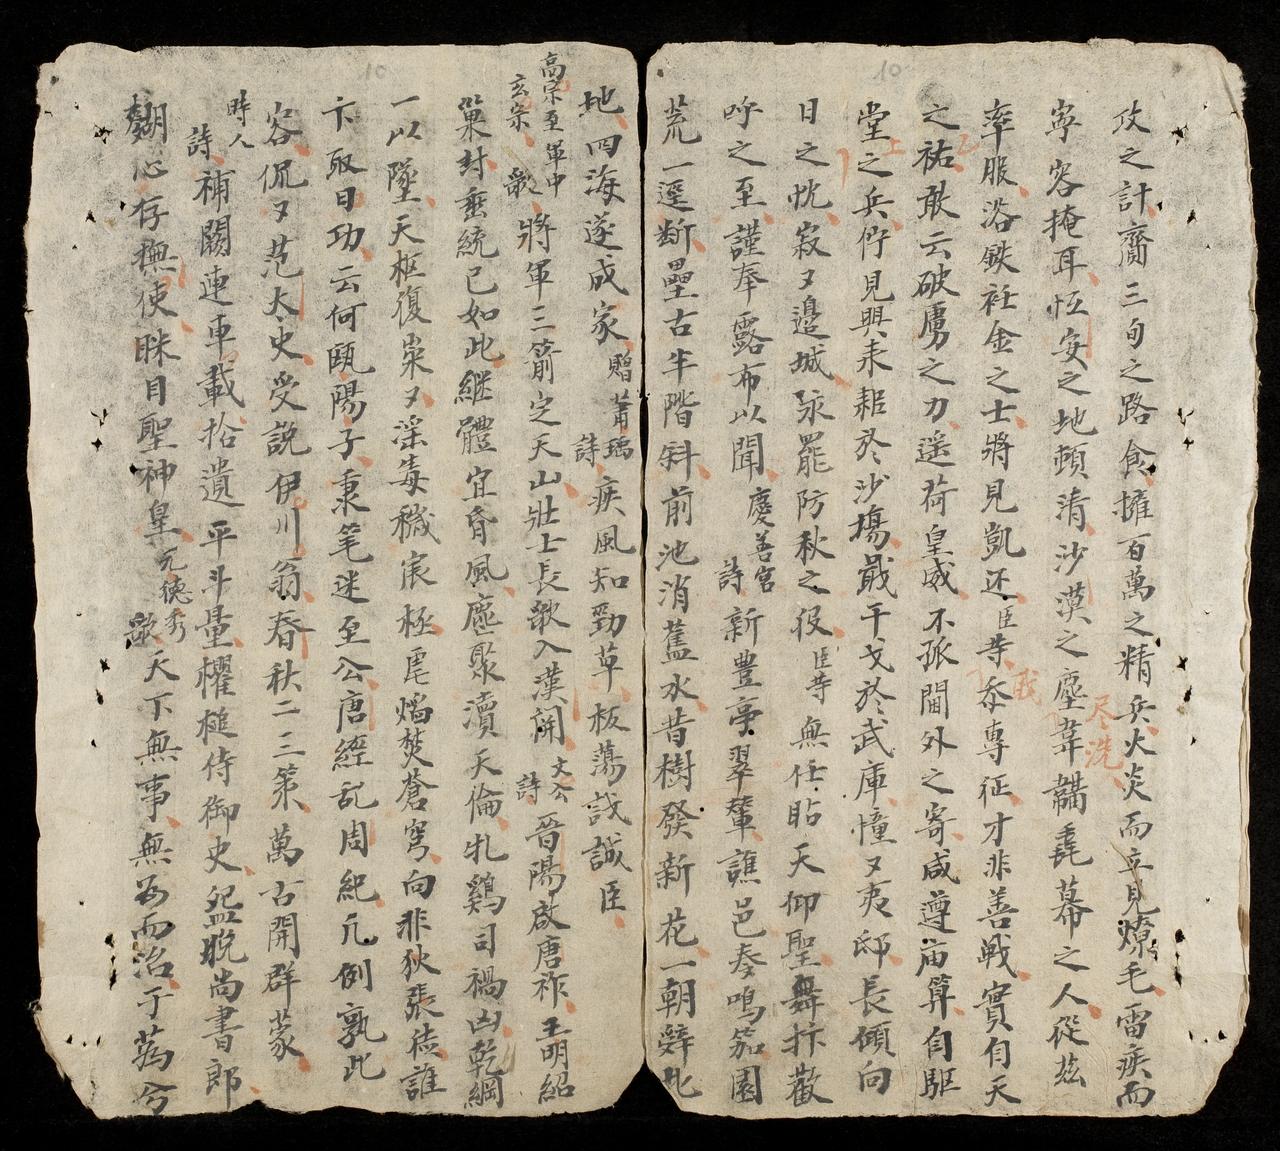 攻之計齎三旬之路食擁百萬之精兵火炎而立見燎毛雷疾而
尽洗
寧容掩耳恆安之地頓清沙漠之塵韋韝毳幕之人從玆
率服浴鉄衽金之士將見凱还臣等忝專征才非善戦實自天
戢
之祐敢云破虜之力遥荷皇威不孤閫外之寄咸遵庙算自駈
堂之兵佇見興耒耜於沙場戢干戈於武庫憧〻夷邸長傾向
日之忱寂〻邉城永罷防秋之役臣等無任贍天仰聖舞抃歡
呼之至謹奉露布以聞慶善宮詩新豊亭翠輦譙邑奏鳴笳園
荒一逕斷壘古半階斜前池消舊水昔樹發新花一朝辤此
地四海遂成家贈蕭瑀詩疾風知勁草板蕩识誠臣
高宗至軍中玄宗歌將軍三箭定天山壮士長歌入漢関文公詩晉陽啟唐祚王明紹
巢封垂統已如此継體宜昏風塵聚瀆天倫牝鷄司禍凶乾綱
一以墜天枢復崇〻滛毒穢宸極虐熖焚蒼穹向非狄張徒誰
卞取日功云何甌陽子秉笔迷至公唐經乱周紀凢例孰此
容侃〻范太史受説伊川翁春秋二三策萬古開群蒙
時人詩補闕連車載拾遺平斗量欋槌侍御史盌脫尚書郎
麴心存撫使眯目聖神皇元徳秀歌天下無事無为而治于蒍兮